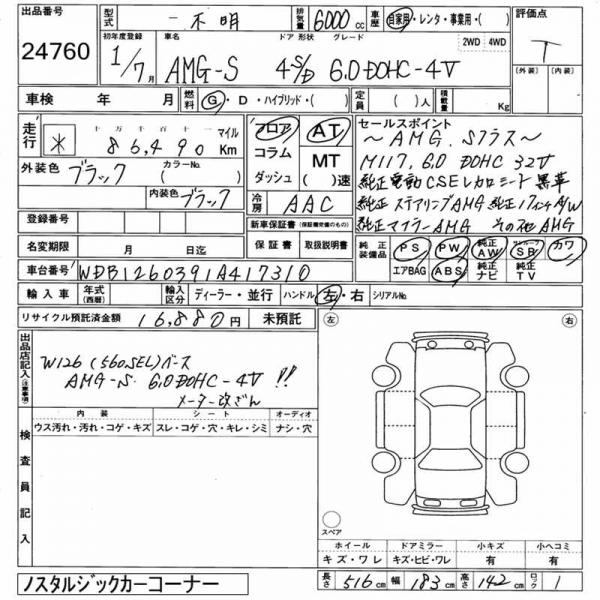 出品番号 型式 一不明 排気量 6000 cc 車歴 自家用・レンタ・事業用・( ) 評価点
24760 1/7月 車名 AMG-S ドア 形状 4S/D グレード 6.0 DOHC-4V 2WD 4WD T
[外装] [内装]
車検 年 月 燃料 G・D・ハイブリッド・( ) 定員 ( )人 積載量 Kg
走行 * 十万 千 百 十 86,490 マイル Km フロア AT セールスポイント
コラム MT ~AMG. Sクラス~
外装色 ブラック カラーNo.( ) ダッシュ ( )速 M117, 6.0 DOHC 32V
内装色 ブラック 冷房 AAC 純正電動CSEレカロシート黒革
登録番号 新車保証書(保証継受のもの) 純正ステアリングAMG 純正17インチA/W
純正マフラーAMG その他AMG
名変期限 月 日迄 保証書 取扱説明書 純正装備品 PS PW 純正AW サンルーフSB カワ
車台番号 WDB1260391A417310 エアBAG ABS 純正ナビ 純正TV
輸入車 年式(西暦) 輸入区分 ディーラー・並行 ハンドル 左・右 シリアルNo.
リサイクル預託済金額 16,880円 未預託 左 右
出品店記入(注意事項)
W126 (560SEL)ベース
AMG-S 6.0 DOHC-4V !!
メーター改ざん
内装 シート オーディオ
ウス汚れ・汚れ・コゲ・キズ スレ・コゲ・穴・キレ・シミ ナシ・穴
検査員記入
スペア
ホイール ドアミラー 小キズ 小ヘコミ
キズ・ワレ キズ・ヒビ・ワレ 有 有
ノスタルジックカーコーナー 長さ 516cm 幅 183cm 高さ 142cm ロック 1